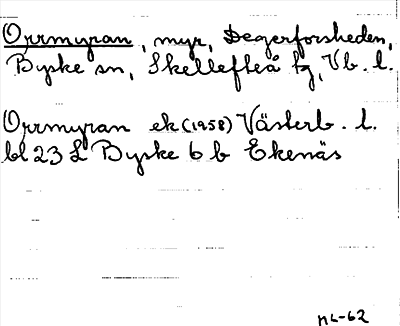 Orrmyran, myr, Degerforsheden,
Byske sn, Skellefteå tg, Vb. l.
Orrmyran ek (1958) Västerb. l.
bl 23 L Byske 6 b Ekenäs
nL-62